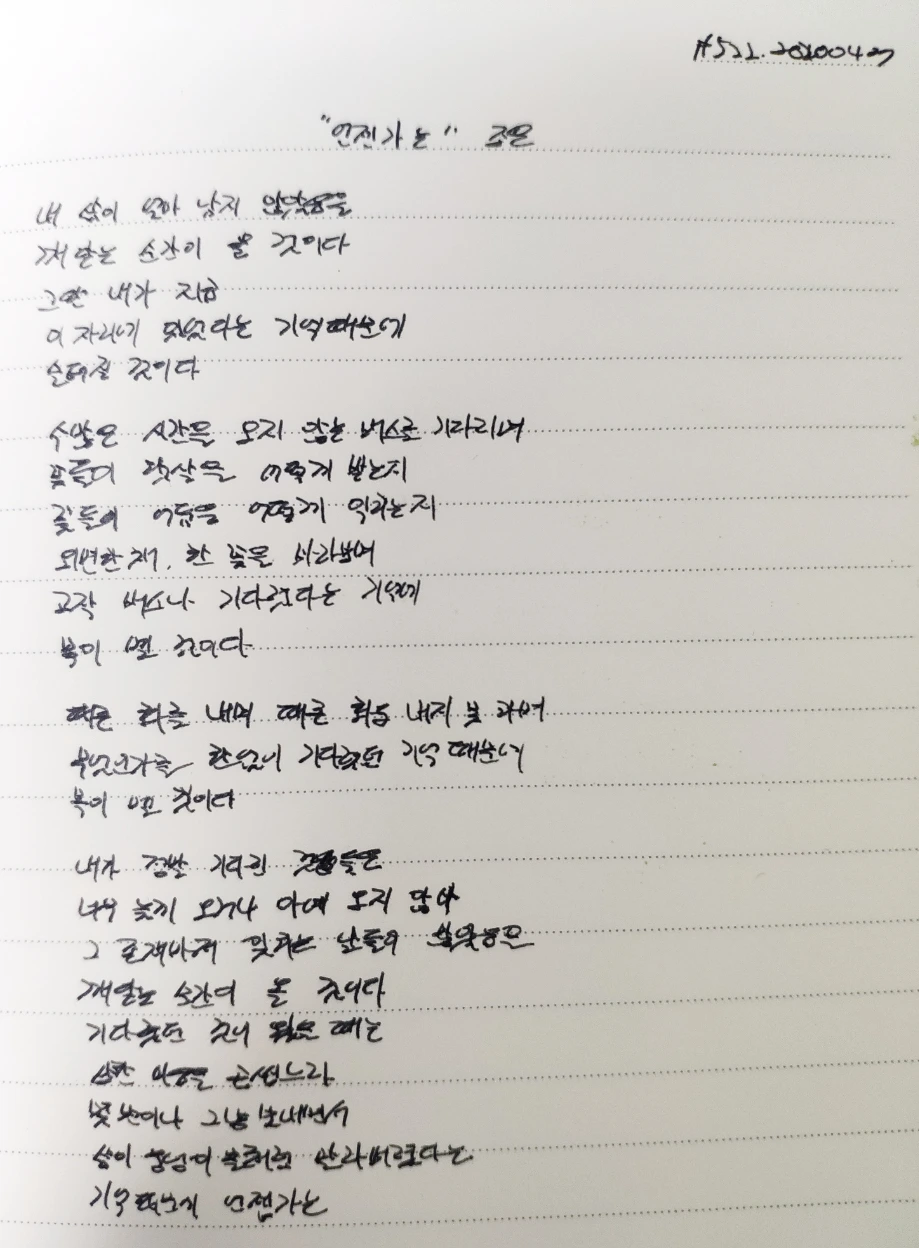 #522. 20200427
"언젠가는" 조은
내 삶이 얼마 남지 않았음을
깨닫는 순간이 올 것이다
그땐 내가 지금
이 자리에 있었다는 기억때문에
슬퍼질 것이다
수많은 시간을 오지 않는 버스를 기다리며
꽃들이 햇살을 어떻게 받는지
꽃들이 어둠을 어떻게 익히는지
외면한 채, 한 곳을 바라보며
고작 버스나 기다렸다는 기억에
목이 멜 것이다
때론 화를 내며 때론 화도 내지 못하며
무엇인가를 한없이 기다렸던 기억 때문에
목이 멜 것이다
내가 정말 기다린 것들은
너무 늦게 오거나 아예 오지 않아
그 존재마저 잊히는 날들이 많았음을
깨닫는 순간이 올 것이다
기다렸던 것이 왔을 때는
상한 마음을 곱씹느라
몇 번이나 그냥 보내면서
삶이 웅덩이 물처럼 말라버렸다는
기억 때문에 언젠가는